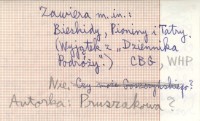 Zawiera m.in.:
Bieskidy, Pieniny i Tatry.
(Wyjątek z „Dziennika
Podróży".) CBG, WHP
Nie: Czy Goszczyńskiego?
Autorka: Pruszakowa?